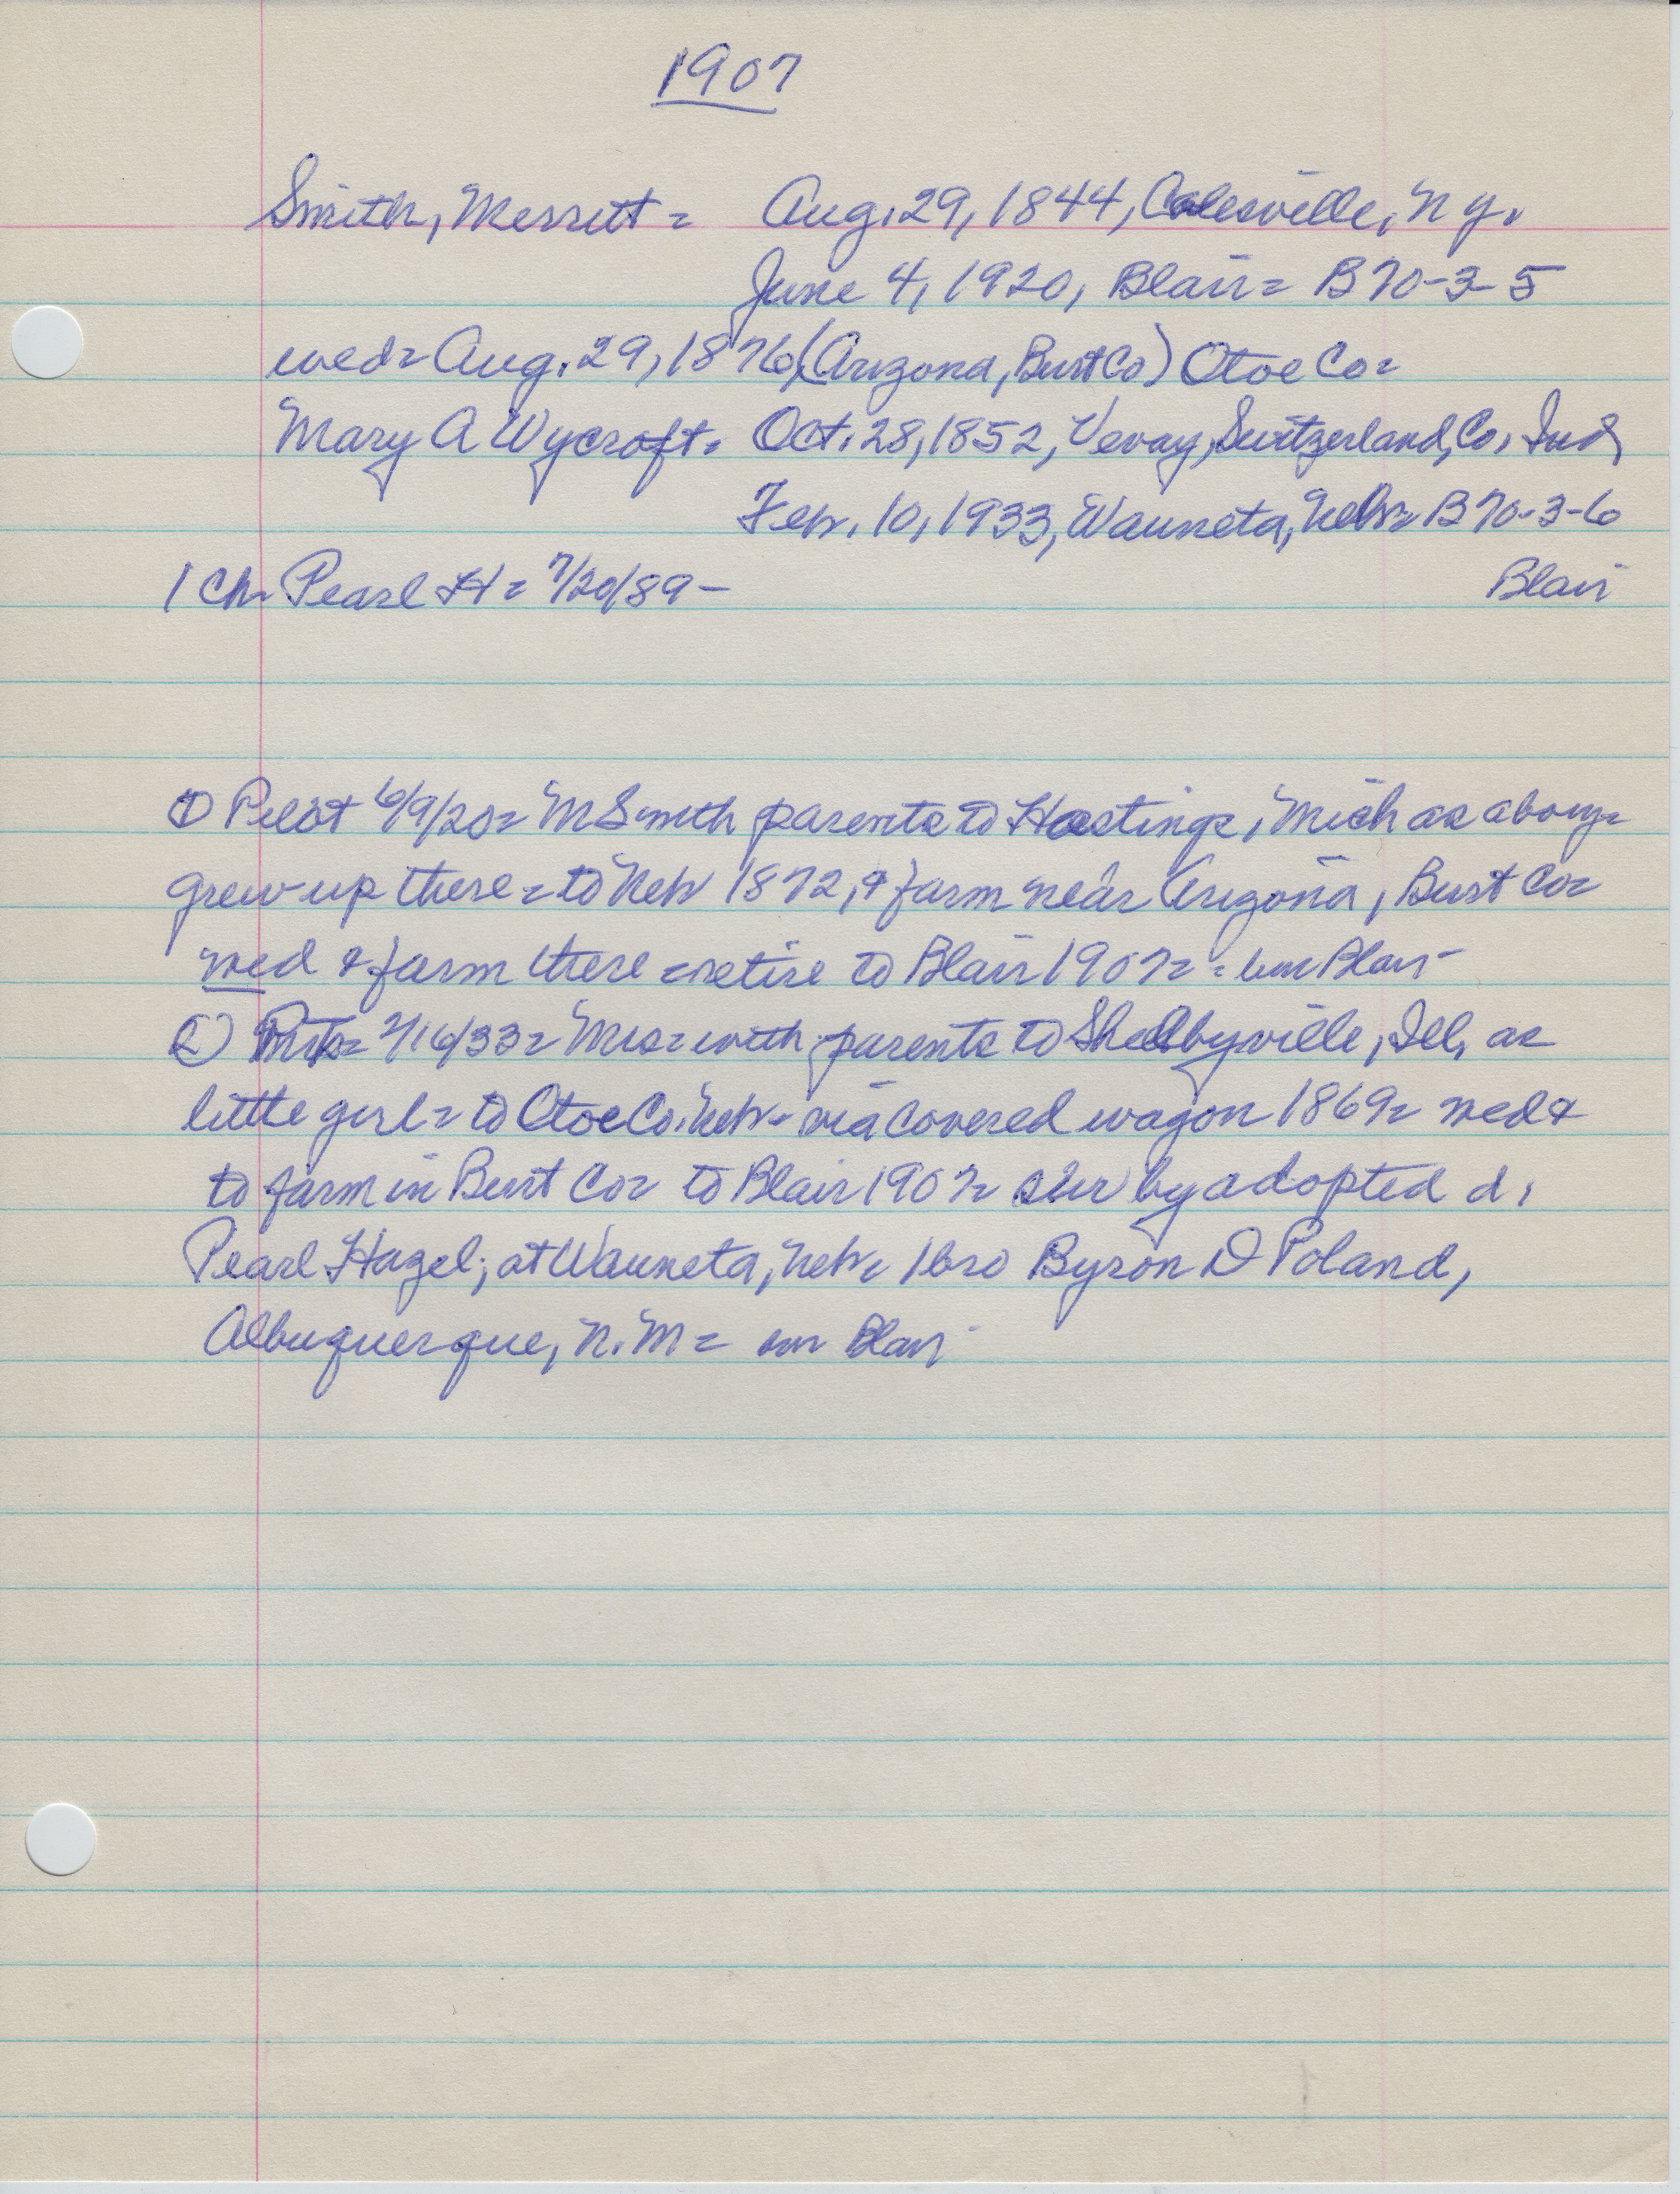 1907
Smith, Merritt = Aug. 29, 1844, Colesville, N Y.
June 4, 1920, Blair = B 70-3-5
wed = Aug. 29, 1876, (Arizona, Burt Co) Otoe Co =
Mary A Wycroft = Oct. 28, 1852, Vevay, Switzerland, Co, Ind,
Feb. 10, 1933, Wauneta, Neb = B 70-3-6
1 Ch = Pearl H = 7/20/89 - Blair
① Pilot 6/9/20 = M Smith parents to Hastings, Mich as a boy =
grew up there = to Neb 1872, & farm near Arizona, Burt Co =
wed & farm there = retire to Blair 1907 = = bur Blair -
② 2/16/33 = Mrs = with parents to Shelbyville, Ill, as
little girl = to Otoe Co. Neb = via covered wagon 1869 = wed &
to farm in Burt Co = to Blair 1907 = sur by adopted d,
Pearl Hazel, at Wauneta, Neb = 1 bro Byron D Poland,
Albuquerque, N.M = Blair